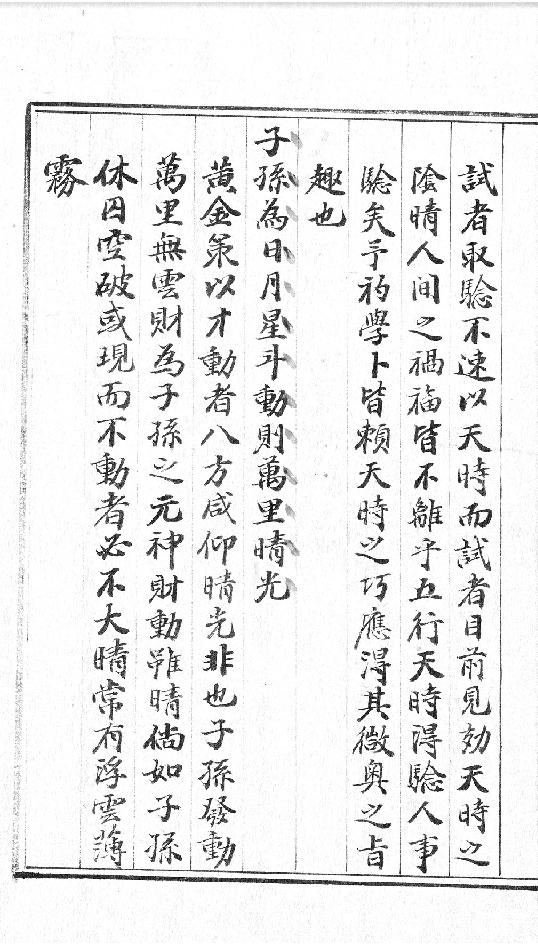 試者取驗不速以天時而試者目前見効天時之
陰晴人间之禍福皆不離乎五行天時得驗人事
驗矣予初學卜皆賴天時之巧應得其微奥之旨
趣也
子孫為日月星斗動則萬里晴光
黄金策以才動者八方咸仰晴光非也子孫發動
萬里無雲財為子孫之元神財動雖晴倘如子孫
休囚空破或現而不動者必不大晴常有浮雲薄
霧